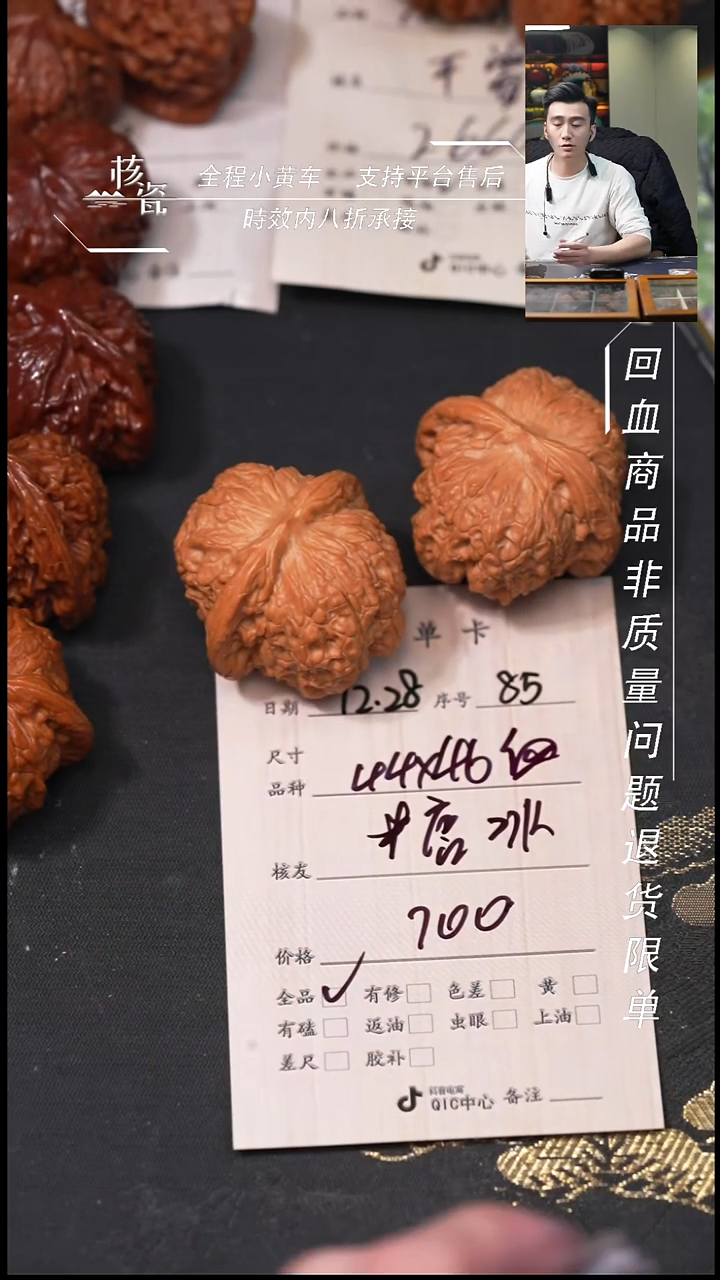 核瓷
全程小黄车 支持平台售后
時效内八折承接
回血商品非质量问题退货限单
单卡
日期 12.28 序号 85
尺寸
品种 44x46
核友 糖冰
价格 700
全品 ✓ 有修 色差 黄
有磕 返油 虫眼 上油
差尺 胶补
抖音电商
QIC中心 备注